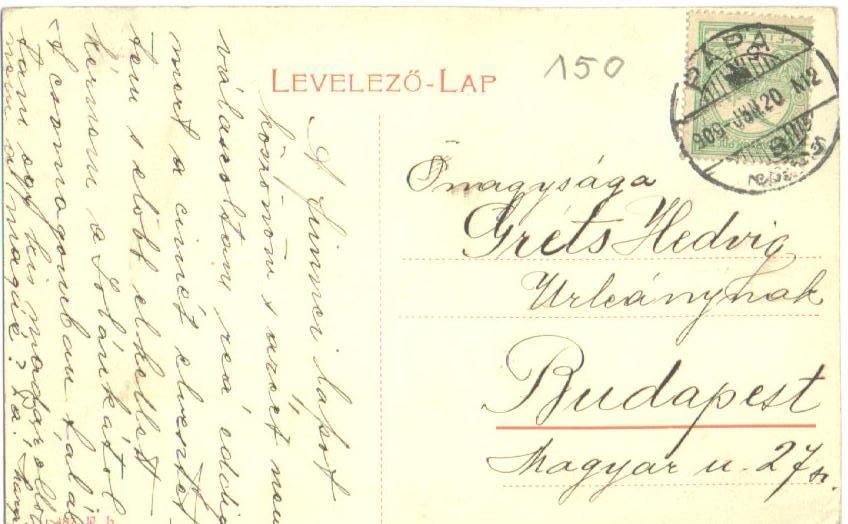 LEVELEZŐ-LAP
150
PÁPA
909 JUN. 20 N12
Őnagysága
Gréts Hedvig
Urleánynak
Budapest
Magyar u. 27 sz.
A liminci lapot
köszönöm s azért nem
válaszoltam reá eddig
mert a cimét elvesztet
tem s előbb el kellett
kérnem a Lolánkától
A csomagomban talál
tam egy kis madár
nem a magáé?